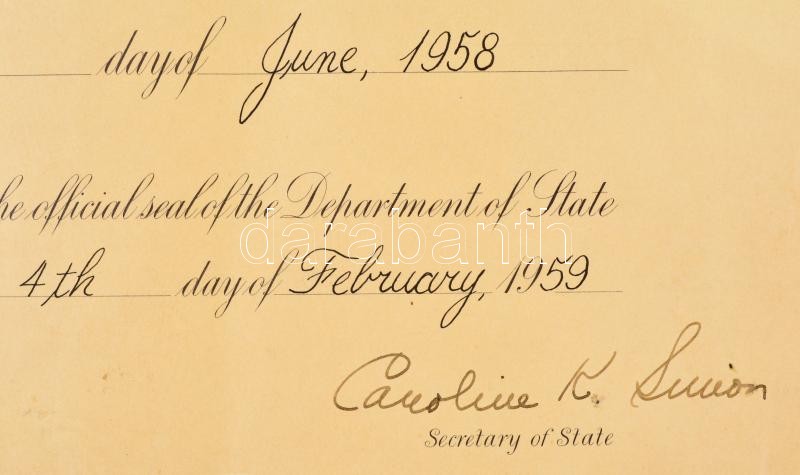 day of June, 1958
he official seal of the Department of State
darabanth
4th day of February, 1959
Caroline K. Simon
Secretary of State